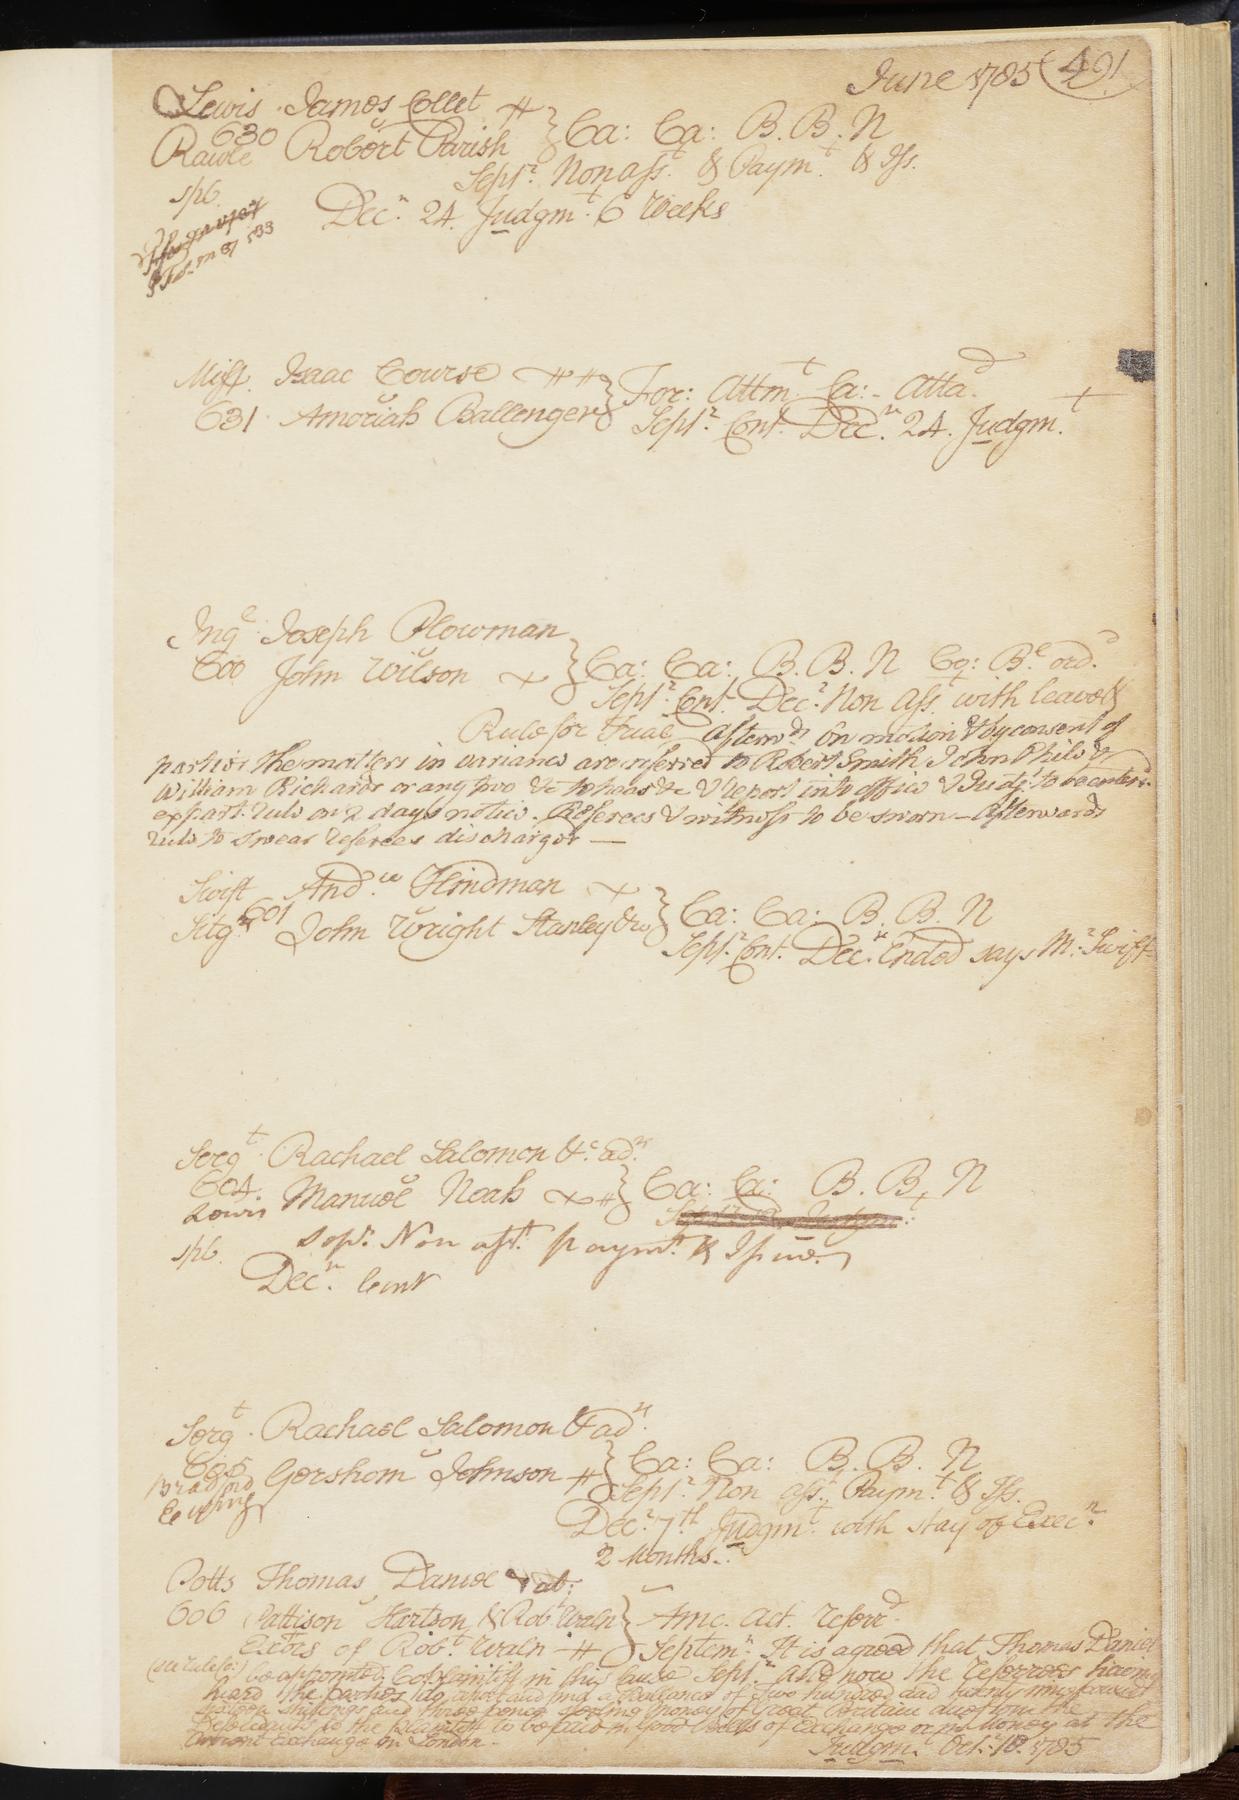 June 1785 491
Lewis James Collet
630
Rawle Robert Parish } Ca: Ca: B. B. N
Sept.r Non ass.t & Paym.t & Iss.
spb.
Dec.r 24. Judgm.t 6 Weeks
Miff. Isaac Course } For: Attm.t Ca:- Atta.d
631. Amoriah Ballenger Sept.r Cont. Dec.r 24. Judgm.t
Ing.e Joseph Plowman
600 John Wilson } Ca: Ca: B. B. N Eq: B.l ord.d
Sept.r Cont- Dec.r Non Ass. with leave &
Rule for Trial afterw.ds On motion & by consent of
parties the matters in variance are referred to Robert Smith John Phile &
William Richards or any two &c to hear &c & report into office & Judg.t to be enterd.
ex part. rule on 2 days notice. Referees & witness to be sworn — Afterwards
rule to swear referees discharged —
Swift And.w Hindman
Sitg.s 601 John Wright Stanley &co } Ca: Ca: B. B. N
Sept.r Cont. Dec.r Ended says M.r Swift
Serg.t Rachael Salomon &c ad.x
604. Manuel Noah } Ca: Ca: B. B. N
Lewis
Sep.r Non ass.t paym.t & Issue.
spb.
Dec.r Cont
Serg.t Rachael Salomon & ad.x
605 Gershom Johnson } Ca: Ca: B. B. N
Bradford Sept.r Non ass.t Paym.t & Iss.
Dec.r 7th Judgm.t with stay of Exec.n
2 Months.
Potts Thomas Daniel
606 Pattison Hartson & Rob.t Waln } Amc. act. referr.d
Ex.ors of Rob.t Waln Septem.r It is agreed that Thomas Daniel
be appointed Co plaintiff in this Cause Sept.r and now the referees having
heard the parties do report and find a Ballance of Two hundred and twenty nine pounds
shillings and three pence Sterling money of Great Britain due from the
Defendants to the plaintiff to be paid in good Bills of Exchange or in Money at the
Current Exchange on London.
Judgm.t Oct. 10. 1785